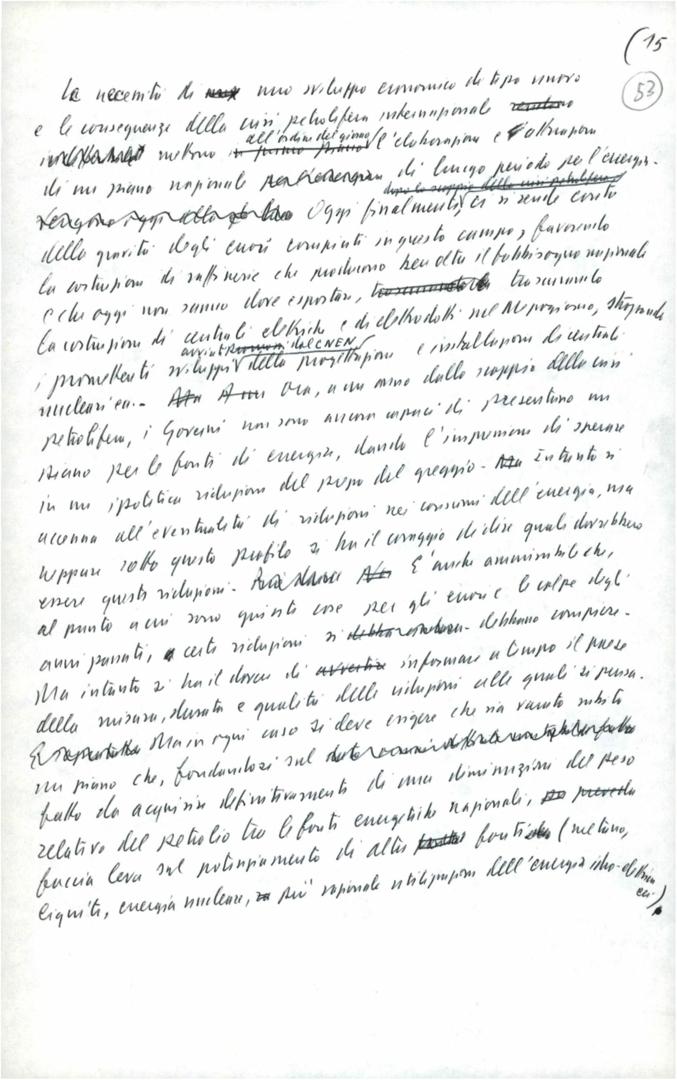 (15
53
La necessità di uno sviluppo economico di tipo nuovo
e le conseguenze della crisi petrolifera internazionale
mettono all'ordine del giorno l'elaborazione e l'attuazione
di un piano nazionale di lungo periodo per l'energia.
dopo lo scoppio della crisi petrolifera
Oggi finalmente, ci si rende conto
della gravità degli errori compiuti in questo campo, favorendo
la costruzione di raffinerie che producono ben oltre il fabbisogno nazionale
e che oggi non sanno dove esportare, trascurando
la costruzione di centrali elettriche e di elettrodotti nel Mezzogiorno, stroncando
i promettenti sviluppi avviati dal CNEN della progettazione e installazione di centrali
nucleari ecc. Ora, a un anno dallo scoppio della crisi
petrolifera, i Governi non sono ancora capaci di presentare un
piano per le fonti di energia, dando l'impressione di sperare
in un ipotetica riduzione del prezzo del greggio. Intanto si
accenna all'eventualità di riduzioni nei consumi dell'energia, ma
neppure sotto questo profilo si ha il coraggio di dire quali dovrebbero
essere queste riduzioni. E' anche ammissibile che,
al punto a cui sono giunte le cose per gli errori e le colpe degli
anni passati, certe riduzioni si debbano compiere.
Ma intanto si ha il dovere di informare a tempo il paese
della misura, durata e qualità delle riduzioni alle quali si pensa.
Ma in ogni caso si deve esigere che sia varato subito
un piano che, fondandosi sul
fatto da acquisire definitivamente di una diminuzione del peso
relativo del petrolio tra le fonti energetiche nazionali,
faccia leva sul potenziamento di altre fonti (metano,
ligniti, energia nucleare, più razionale utilizzazione dell'energia idro-elettrica
ecc.).